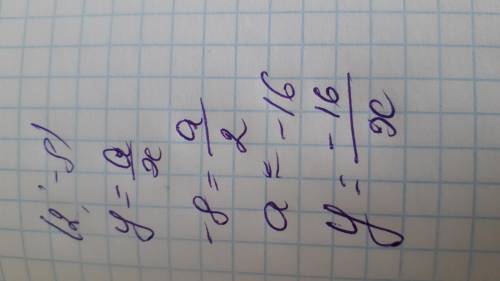 (2; -8)
y = a/x
-8 = a/2
a = -16
y = -16/x